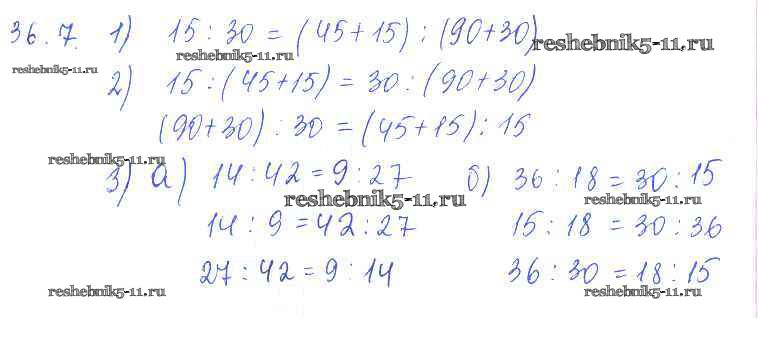 36.7. 1) 15 : 30 = (45+15) : (90+30)
reshebnik5-11.ru
reshebnik5-11.ru
reshebnik5-11.ru
2) 15 : (45+15) = 30 : (90+30)
(90+30) : 30 = (45+15) : 15
reshebnik5-11.ru
3) а) 14 : 42 = 9 : 27 б) 36 : 18 = 30 : 15
reshebnik5-11.ru
reshebnik5-11.ru
14 : 9 = 42 : 27 15 : 18 = 30 : 36
27 : 42 = 9 : 14 36 : 30 = 18 : 15
reshebnik5-11.ru
reshebnik5-11.ru